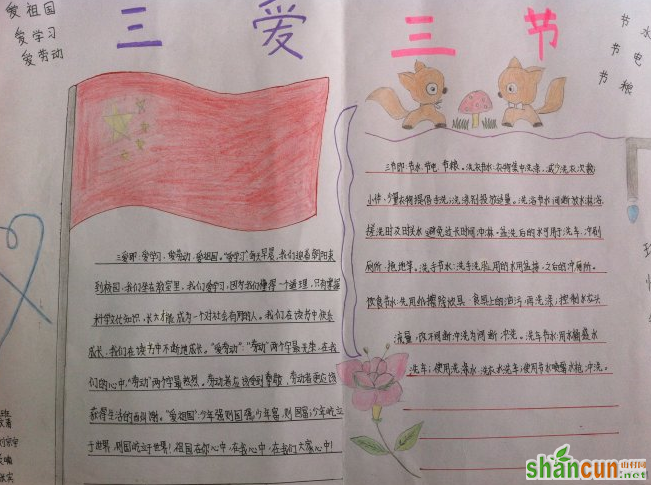 爱祖国
爱学习
爱劳动
三 爱 三 节
节水
节电
节粮
三爱即:爱学习,爱劳动,爱祖国。"爱学习"每天早晨,我们迎着朝阳来
到校园,我们坐在教室里,我们爱学习,因为我们懂得一个道理,只有掌握
科学文化知识,长大才能成为一个对社会有用的人。我们在读书中快乐
成长,我们在读书中不断地成长。"爱劳动":"劳动"两个字最光荣,在我
们的心中,"劳动"两个字最热烈。劳动者应该受到尊敬,劳动者更应该
获得生活的
"爱祖国"少年强则国强,少年富,则国富;少年屹立
于世界,则国屹立于世界!祖国在你心中,在我心中,在我们大家心中!
三节即:节水,节电,节粮。洗衣节水:衣物集中洗涤,减少洗衣次数
小件、少量衣物提倡手洗;洗涤剂投放适量。洗浴节水:间断放水淋浴
搓洗时及时关水,避免过长时间冲淋。盆洗后的水可用于洗车、冲刷
厕所、拖地等。洗手节水:洗手洗脸用的水用盆接,之后的冲厕所。
饮食节水:先用
擦除炊具、食具上的油污,再洗涤;控制水龙头
流量,改不间断冲洗为间断冲洗。洗车节水:用水桶盛水
洗车;使用洗涤水、洗衣水洗车;使用节水喷雾水枪冲洗。
shancun
山村网
.net